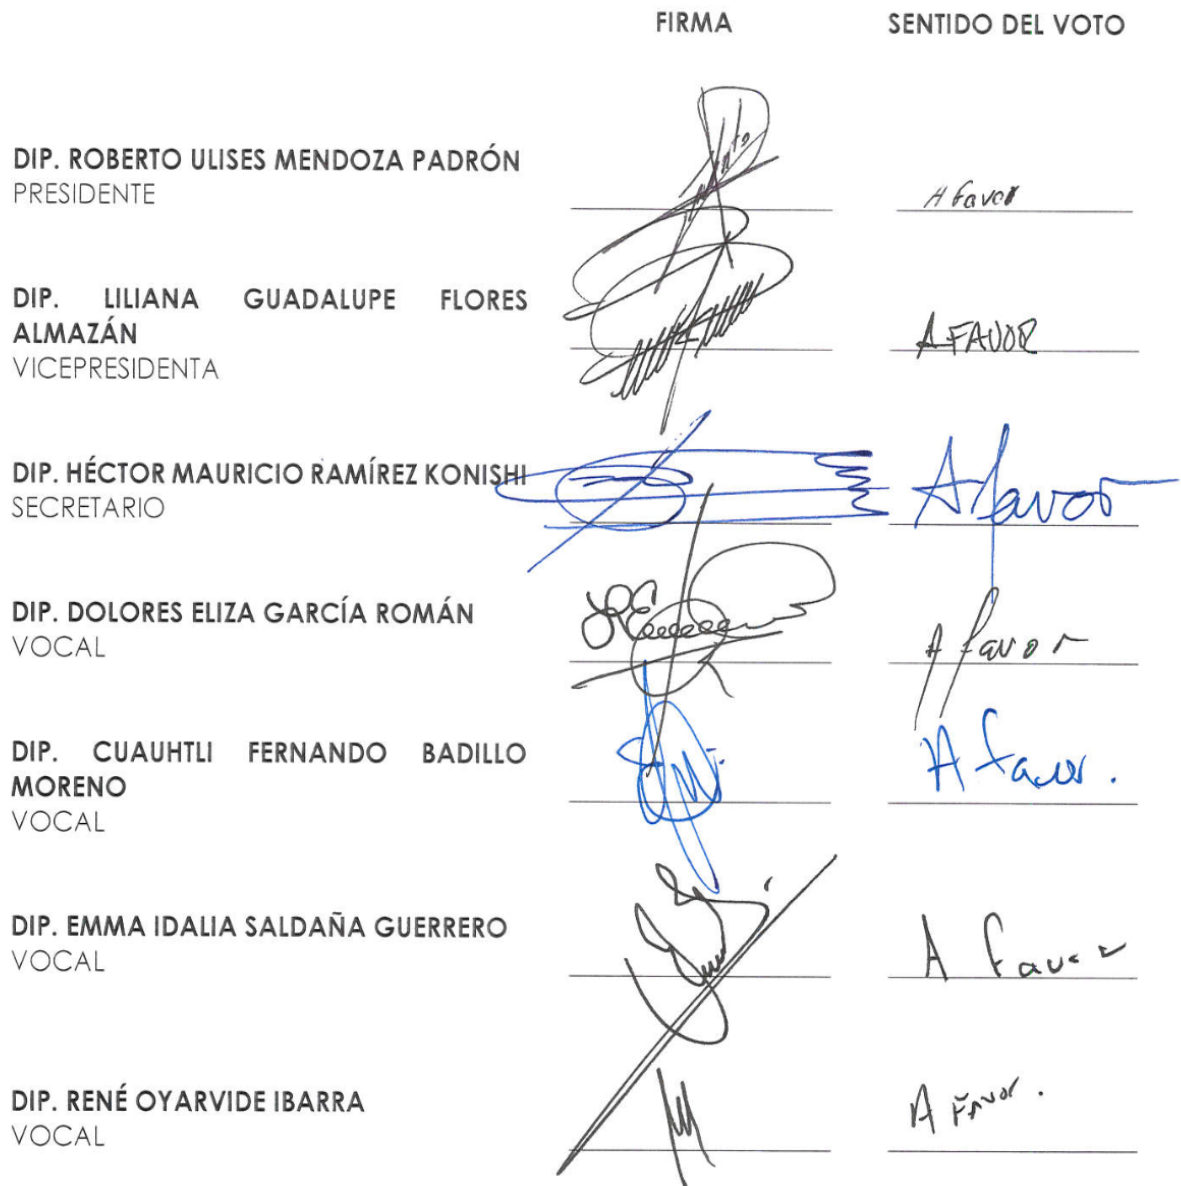 FIRMA SENTIDO DEL VOTO
DIP. ROBERTO ULISES MENDOZA PADRÓN
PRESIDENTE
A favor
DIP. LILIANA GUADALUPE FLORES
ALMAZÁN
VICEPRESIDENTA
A FAVOR
DIP. HÉCTOR MAURICIO RAMÍREZ KONISHI
SECRETARIO
A favor
DIP. DOLORES ELIZA GARCÍA ROMÁN
VOCAL
A favor
DIP. CUAUHTLI FERNANDO BADILLO
MORENO
VOCAL
A favor.
DIP. EMMA IDALIA SALDAÑA GUERRERO
VOCAL
A favor
DIP. RENÉ OYARVIDE IBARRA
VOCAL
A FAvor.